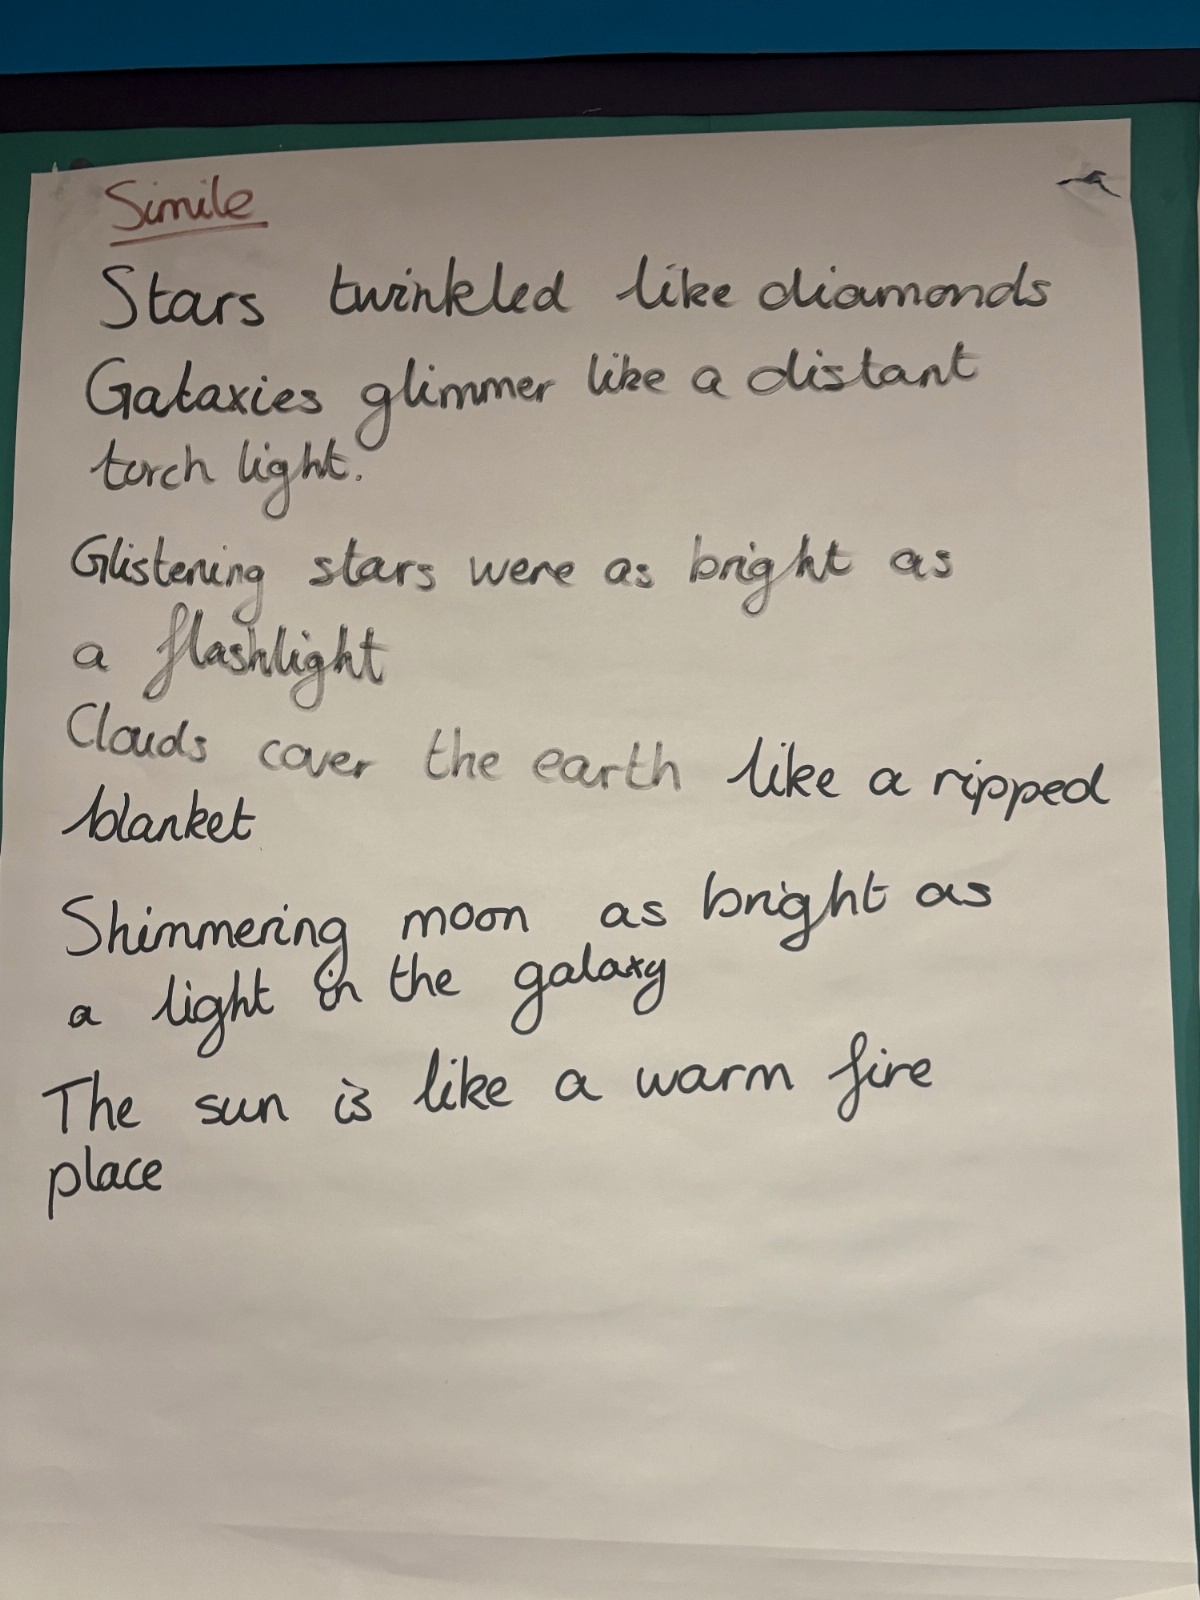 Simile
Stars twinkled like diamonds
Galaxies glimmer like a distant
torch light.
Glistening stars were as bright as
a flashlight
Clouds cover the earth like a ripped
blanket
Shimmering moon as bright as
a light in the galaxy
The sun is like a warm fire
place